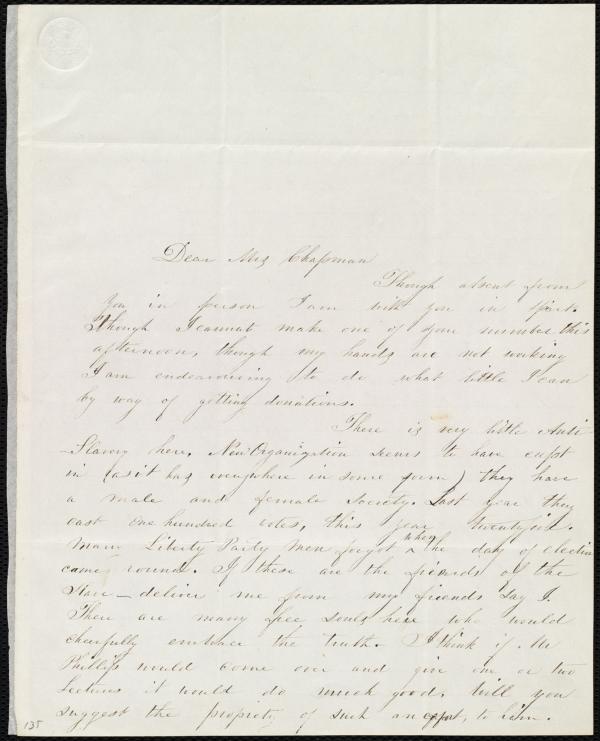 Dear Mrs Chapman
Though absent from
you in person I am with you in spirit.
Though I cannot make one of your number this
afternoon, though my hands are not working
I am endeavouring to do what little I can
by way of getting donations.
There is very little Anti
-Slavery here. New Organization seems to have crept
in (as it has everywhere in some form) they have
a male and female Society. Last year they
cast one hundred votes, this year twentysix.
Many Liberty Party men forgot when the day of election
came round. If these are the friends of the
Slave — deliver me from my friends say I.
There are many free souls here who would
cheerfully embrace the truth. I think if Mr
Phillips would come over and give one or two
Lectures it would do much good. Will you
suggest the propriety of such an to him.
135